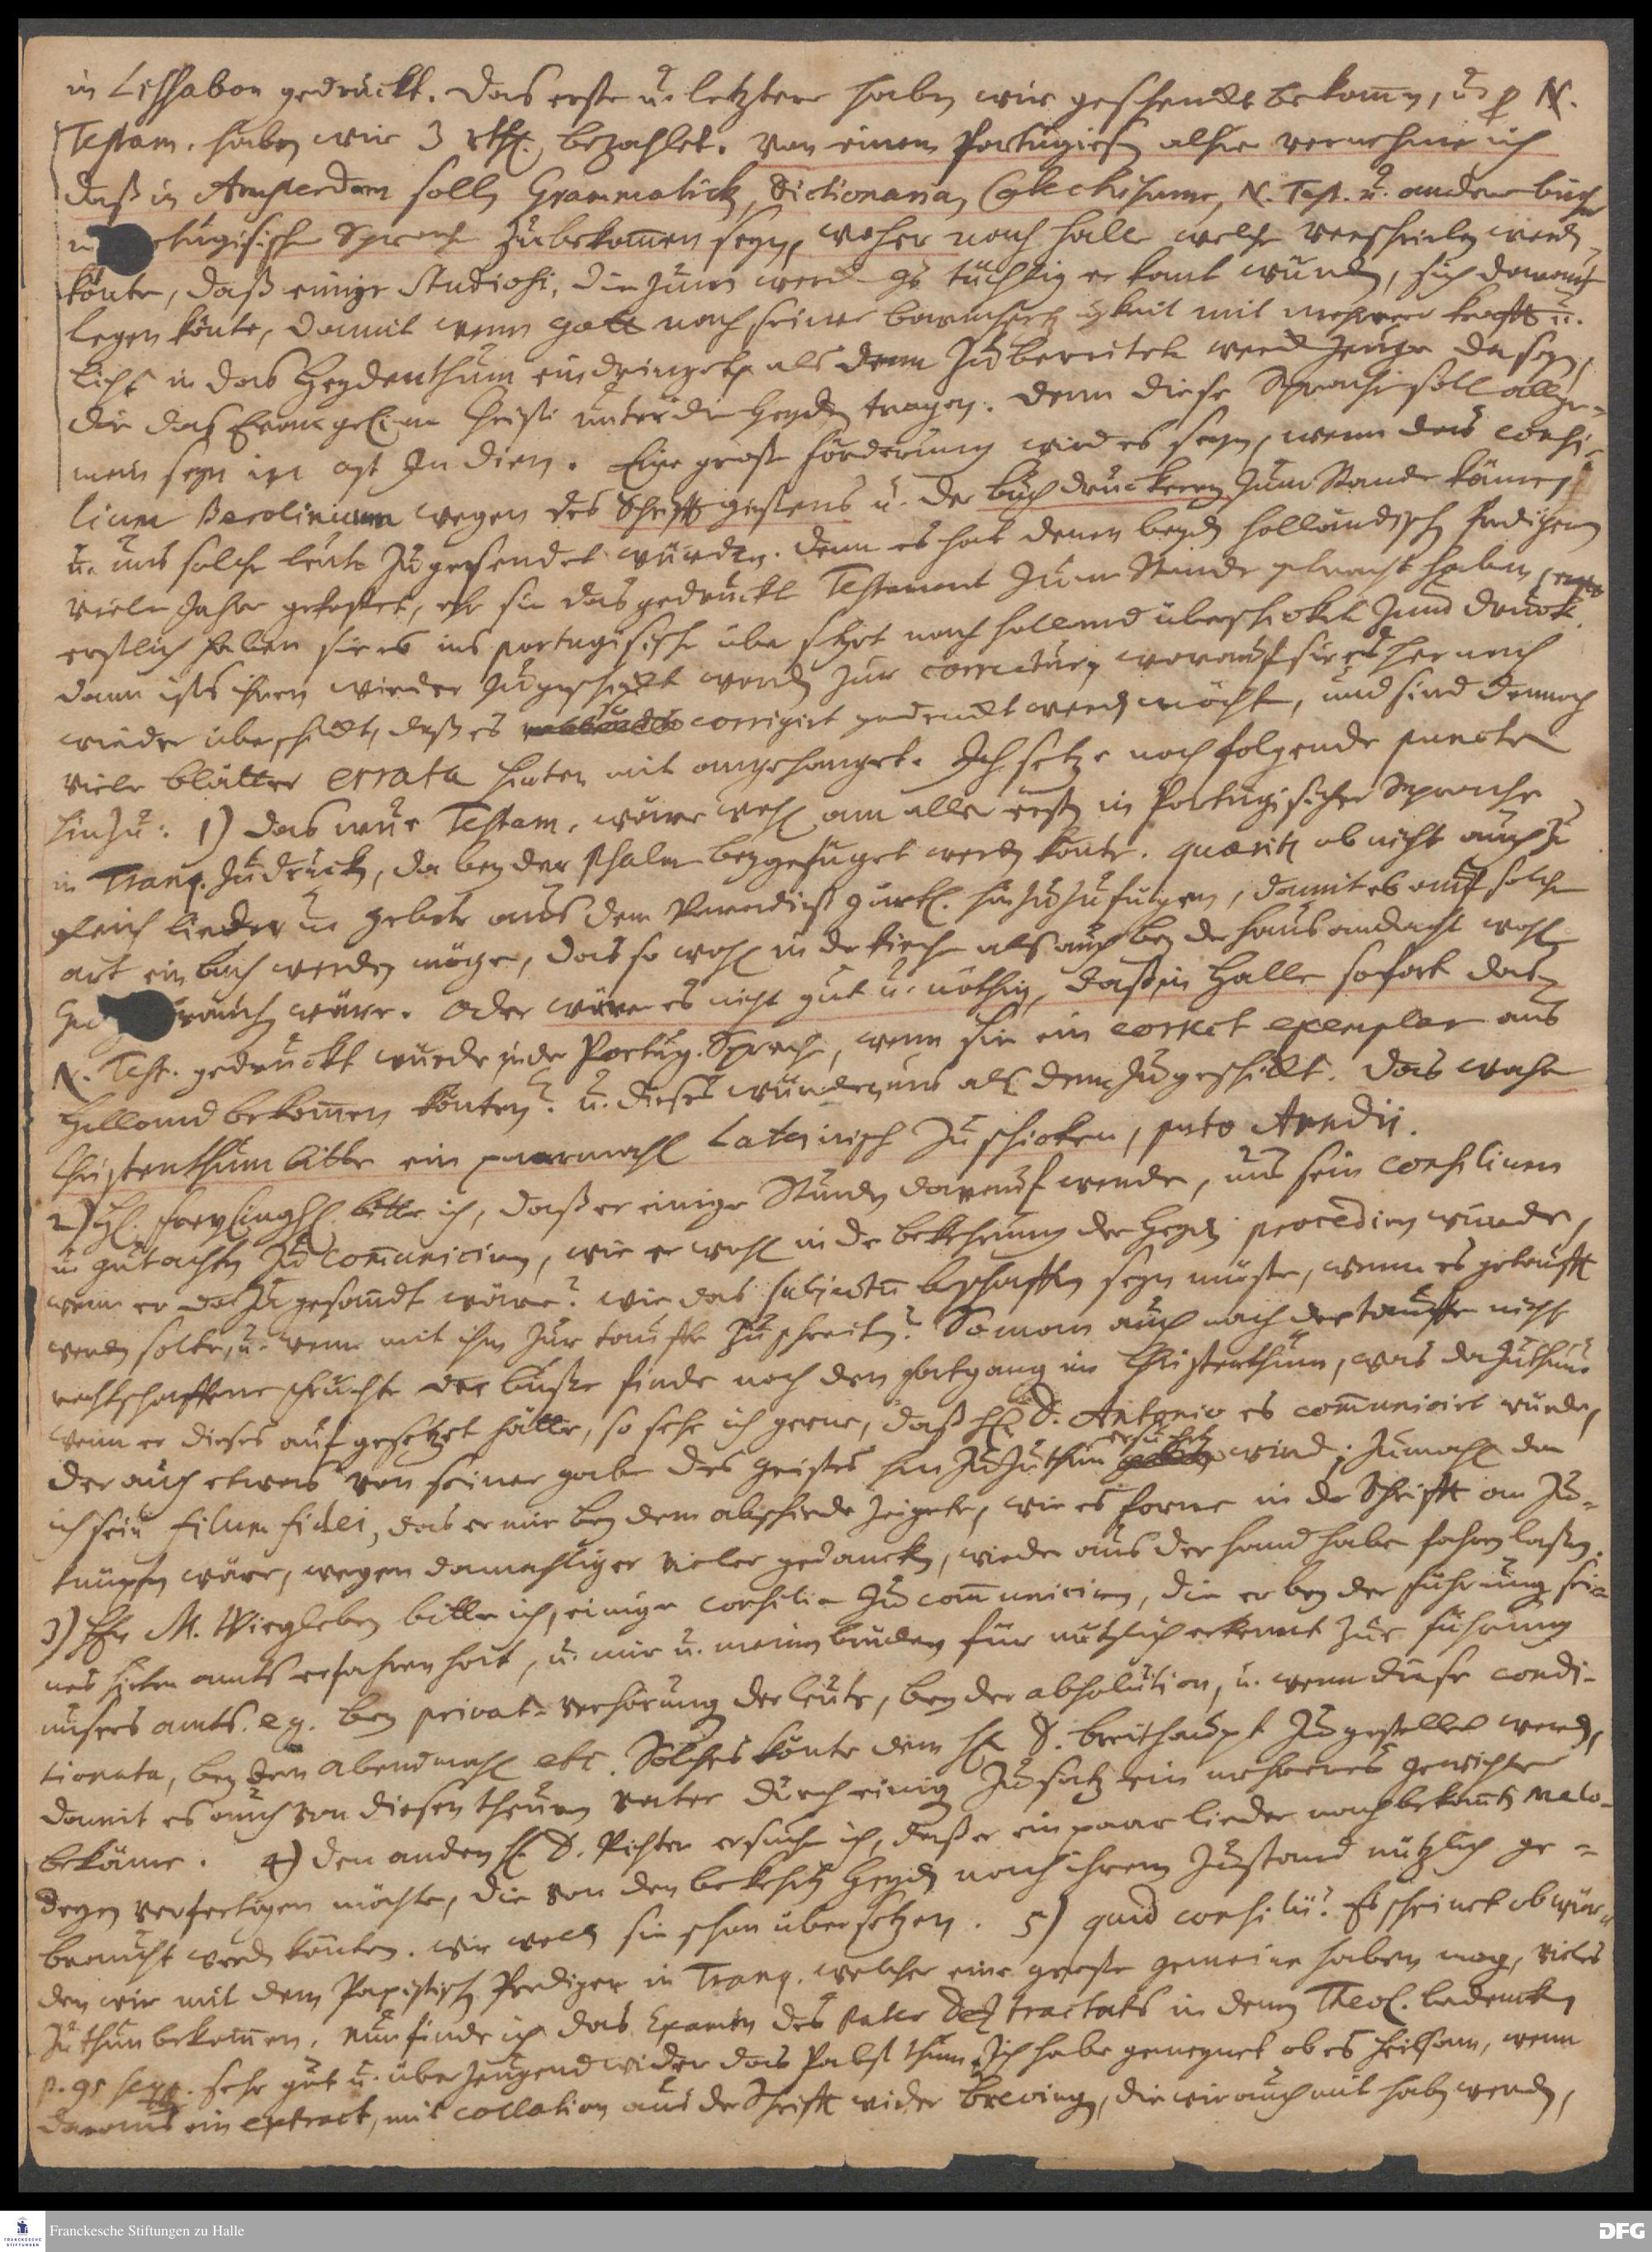 in Lissabon gedruckt. Das erste u. letztere haben wir geschenckt bekom̄en, u. p N.
Testam. haben wir 3 rthl. bezahlet. Von einem Portugiesen alhier vernehme ich
daß in Amsterdam sollen Grammatick, Dictionaria, Catechismi, N. Test. u. andere bücher
in portugisischer Sprache zubekom̄en seyn, woher nach Halle welche verschrieben werden
könte, daß einige Studiosi, die zum werck Gs tüchtig erkant würden, sich darauf
legen könte, damit wenn Gott nach seiner barmhertzigkeit mit mehrer krafft u.
Licht in das Heydenthum eindringet, als denn zubereitete werckzeuge da seyn,
die das Evangelium Christi unter die Heyden tragen. Denn diese Sprache soll allge-
mein seyn in ost Indien. Eine große förderung wird es seyn, wenn das consi-
lium Berolinium wegen des Schrifft gießens u. der buchdruckerey zum Stande käme,
u. uns solche leute zugesendet würden. Denn es hat denen beyden holländischen Predigern
viele Jahre gekostet, ehe sie das gedruckte Testament zum Stande gebracht haben,
erstlich haben sie es ins portugisische übersetzt nach Holland überschickt zum druck
dann ists ihnen wieder zugeschickt worden zur correctur, worauf sie es hernach
wieder überschickt, daß es so corrigirt gedruckt werden möchte, und sind dennoch
viele blätter errata hinten mit angehanget. Ich setze noch folgende puncte
hinzu: 1) Das neue Testam. wäre wohl am aller ersten in Portugisischer Sprache
in Tranq. zudrucken, da bey der Psalm beygefüget werden könte. quaeritur ob nicht auch zu
gleich lieder u. gebete aus dem Paradieß gärtl. hinzuzufügen, damit es auf solche
art ein buch werden möge, das so wohl in der kirche als auch bey der hausandacht wohl
zu gebrauchen wäre. Oder wäre es nicht gut u. nöthig, daß in Halle sofort das
N. Test. gedruckt würde in der Portug. Sprache, wenn sie ein correct exemplar aus
Holland bekom̄en könten? u. dieses würde uns als denn zugeschickt. Das wahre
Christenthum bitte ein paarmahl Lateinisch zu schicken, puto Arndii.
2) H. Freylinghs. bitte ich, daß er einige Stunden darauf wende, uns sein consilium
u. gutachten zu com̄uniciren, wie er wohl in der bekehrung der Heyden procediren würde,
wenn er dazu gesandt wäre? wie das subjectum beschaffen seyn müste, wenn es getaufft
werden solte, u. wenn mit ihm zur tauffe zu schreiten? So man auch nach der tauffe nicht
rechtschaffene früchte der buße finde noch den fortgang im Christenthum, was da zuthun?
wenn er dieses aufgesetzet hätte, so sehe ich gerne, daß H. D. Antonio es com̄uniciret würde,
der auch etwas von seiner gabe des geistes hinzuzuthun ersuchet wird; zumahl da
ich sein filum fidei, das er mir bey dem abschiede zeigete, wie es forne in der Schrifft an zu-
knüpfen wäre, wegen damahliger vieler gedancken, wieder aus der hand habe fahren laßen.
3) Hn M. Wiegleben bitte ich, einige consilia zu com̄uniciren, die er bey der führung sei-
nes hirten amts erfahren hat, u. mir u. meinem bruder für nützlich erkennet zur führung
unsers amts. e.g. bey privat-verhörung der leute, bey der absolution, u. wenn diese condi-
tionata, bey dem abendmahl etc. Solches könte dem H. D. Breithaupt zugestellet werden,
damit es auch von diesem theuren vater durch einig zusatz ein mehreres gewichte
bekäme. 4) Den andern H. D. Richter ersuche ich, daß er ein paar lieder nach bekante Melo-
deyen verfertigen möchte, die von den bekehrten Heyden nach ihrem Zustand nützlich ge-
braucht werden könten. wir wollen sie schon übersetzen. 5) quid consilii? Es scheinet ob wür-
den wir mit dem Papistischen Prediger in Tranq. welcher eine große gemeine haben mag, vieles
zuthun bekom̄en. Nun finde ich das Examen des Pater Dez tractats in denen Theol. bedencken
p. 95 seqq. sehr gut u. überzeugend wider das Pabstthum. Ich habe gemeynet ob es heilsam, wenn
daraus ein extract, mit collation aus der Schrifft wider Breving, die wir auch mit haben werden,
Franckesche Stiftungen zu Halle
FRANCKESCHE STIFTUNGEN
DFG